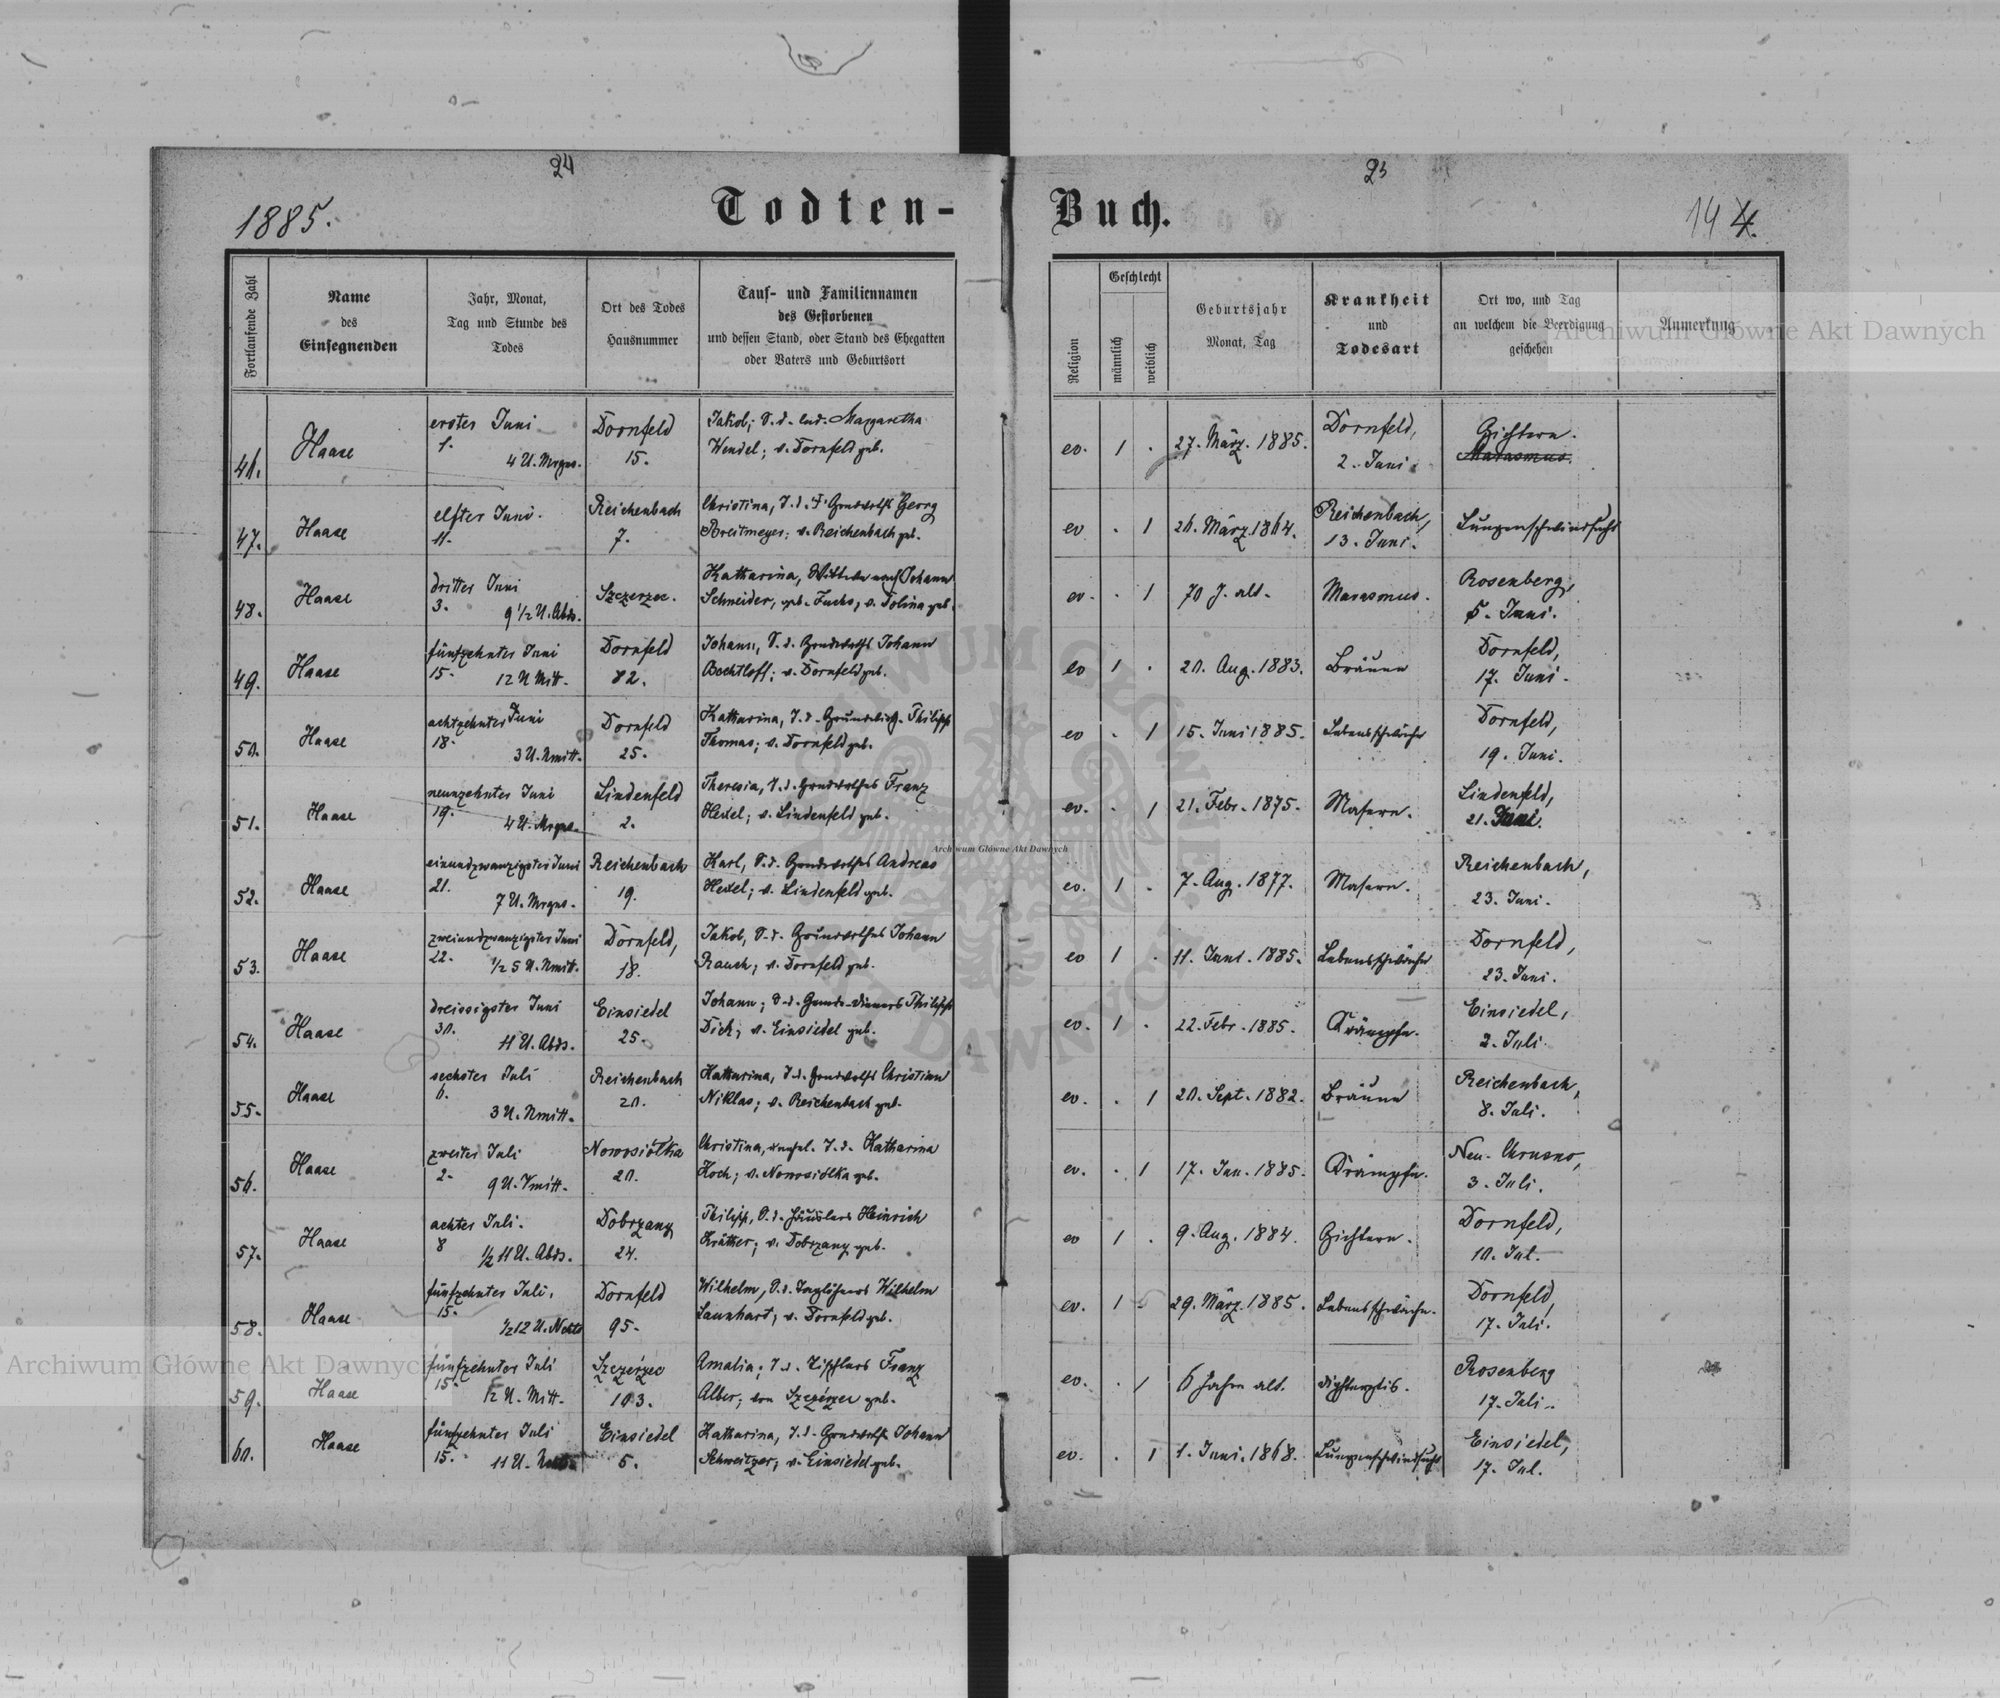 24
23
1885.
Todten-
Buch.
144.
Fortlaufende Zahl
Name
des
Einsegnenden
Jahr, Monat,
Tag und Stunde des
Todes
Ort des Todes
Hausnummer
Tauf- und Familiennamen
des Gestorbenen
und dessen Stand, oder Stand des Ehegatten
oder Vaters und Geburtsort
Religion
Geschlecht
männlich
weiblich
Geburtsjahr
Monat, Tag
Krankheit
und
Todesart
Ort wo, und Tag
an welchem die Beerdigung
geschehen
Anmerkung
46. Haase
erster Juni
1.
4 U. Mrgns.
Dornfeld
15.
Jakob; S. d. led. Margaretha
Wendel; v. Dornfeld geb.
ev. 1 . 27. März. 1885.
Dornfeld,
2. Juni.
Gichtern.
Marasmus.
47. Haase
elfter Juni.
11.
Reichenbach
7.
Christina, T. d. † Grundwirths Georg
Breitmeyer; v. Reichenbach geb.
ev . 1 26. März 1864.
Reichenbach,
13. Juni.
Lungenschwindsucht
48. Haase
dritter Juni
3.
9 1/2 U. Abds.
Szczerzec.
Katharina, Wittwe nach Johann
Schneider, geb. Fuchs, v. Dolina geb.
ev. . 1 70 J. alt.
Marasmus.
Rosenberg,
5. Juni.
49. Haase
fünfzehnter Juni
15. 12 U Mitt.
Dornfeld
82.
Johann, S. d. Grundwirths Johann
Bechtloff; v. Dornfeld geb.
ev 1 . 20. Aug. 1883.
Bräune
Dornfeld,
17. Juni.
50. Haase
achtzehnter Juni
18.
3 U. Nmitt.
Dornfeld
25.
Katharina, T. d. Grundwirth. Philipp
Thomas; v. Dornfeld geb.
ev . 1 15. Juni 1885.
Lebensschwäche
Dornfeld,
19. Juni.
51. Haase
neunzehnter Juni
19.
4 U. Mrgns.
Lindenfeld
2.
Theresia, T. d. Grundwirthes Franz
Hexel; v. Lindenfeld geb.
ev. . 1 21. Febr. 1875.
Masern.
Lindenfeld,
21. Juni.
52. Haase
einundzwanzigster Juni
21.
7 U. Mrgns.
Reichenbach
19.
Karl, S. d. Grundwirthes Andreas
Hexel; v. Lindenfeld geb.
ev. 1 . 7. Aug. 1877.
Masern.
Reichenbach,
23. Juni.
53. Haase
zweiundzwanzigster Juni
22.
1/2 5 U. Nmitt.
Dornfeld,
18.
Jakob, S. d. Grundwirthes Johann
Rausch; v. Dornfeld geb.
ev 1 . 11. Juni. 1885.
Lebensschwäche
Dornfeld,
23. Juni.
54. Haase
dreissigster Juni
30.
11 U. Abds.
Einsiedel
25.
Johann; S. d. Gemde-Dieners Philipp
Dick; v. Einsiedel geb.
ev. 1 . 22. Febr. 1885.
Krämpfe.
Einsiedel,
2. Juli.
55. Haase
sechster Juli
6.
3 U. Nmitt.
Reichenbach
20.
Katharina, T. d. Grundwirths Christian
Niklas; v. Reichenbach geb.
ev. . 1 20. Sept. 1882.
Bräune
Reichenbach,
8. Juli.
56. Haase
zweiter Juli
2.
9 U. Vmitt.
Nowosiółka
20.
Christina, unehel. T. d. Katharina
Koch; v. Nowosiółka geb.
ev. . 1 17. Jan. 1885.
Krämpfe.
Neu-Chrusno,
3. Juli.
57. Haase
achter Juli.
8
1/2 11 U. Abds.
Dobrzany
24.
Philipp, S. d. Häuslers Heinrich
Kräther; v. Dobrzany geb.
ev 1 . 9. Aug. 1884.
Gichtern.
Dornfeld,
10. Jul.
58. Haase
fünfzehnter Juli.
15.
1/2 12 U. Nchts
Dornfeld
95.
Wilhelm, S. d. Taglöhners Wilhelm
Launhart; v. Dornfeld geb.
ev. 1 29. März. 1885.
Lebensschwäche.
Dornfeld,
17. Juli.
59. Haase
fünfzehnter Juli
15.
12 U. Mitt.
Szczerzec
103.
Amalia; T. d. Tischlers Franz
Alber; von Szczerzec geb.
ev. . 1 6 Jahre alt.
Diphterytis.
Rosenberg
17. Juli.
60. Haase
fünfzehnter Juli
15. 11 U.
Einsiedel
5.
Katharina, T. d. Grundwirths Johann
Schweitzer; v. Einsiedel geb.
ev. . 1 1. Juni. 1868.
Lungenschwindsucht
Einsiedel,
17. Jul.
Archiwum Główne Akt Dawnych
Archiwum Główne Akt Dawnych
Archiwum Główne Akt Dawnych
ARCHIWUM GŁÓWNE AKT DAWNYCH